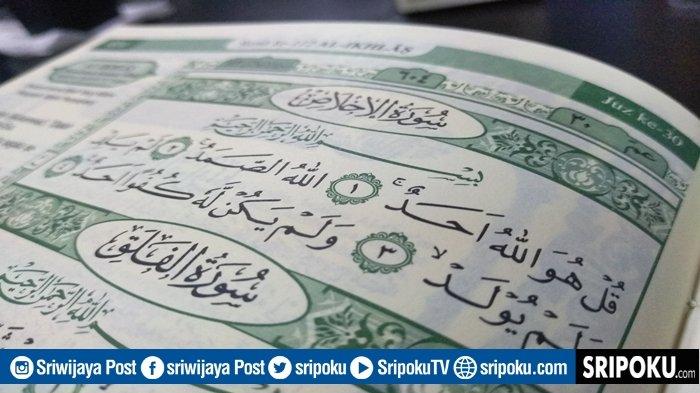 Juz ke-30
عم ٣٠
٦٠٤
سُوْرَةُ الْاِخْلَاصِ
بِسْمِ اللّٰهِ الرَّحْمٰنِ الرَّحِيْمِ
قُلْ هُوَ اللّٰهُ اَحَدٌۚ ١ اَللّٰهُ الصَّمَدُۚ ٢ لَمْ يَلِدْ
وَلَمْ يُوْلَدْۙ ٣ وَلَمْ يَكُنْ لَّهٗ كُفُوًا اَحَدٌ ٤
سُوْرَةُ الْفَلَقِ
بِسْمِ اللّٰهِ الرَّحْمٰنِ الرَّحِيْمِ
Sriwijaya Post sriwijaya Post sripoku SripokuTV sripoku.com
SRIPOKU.com